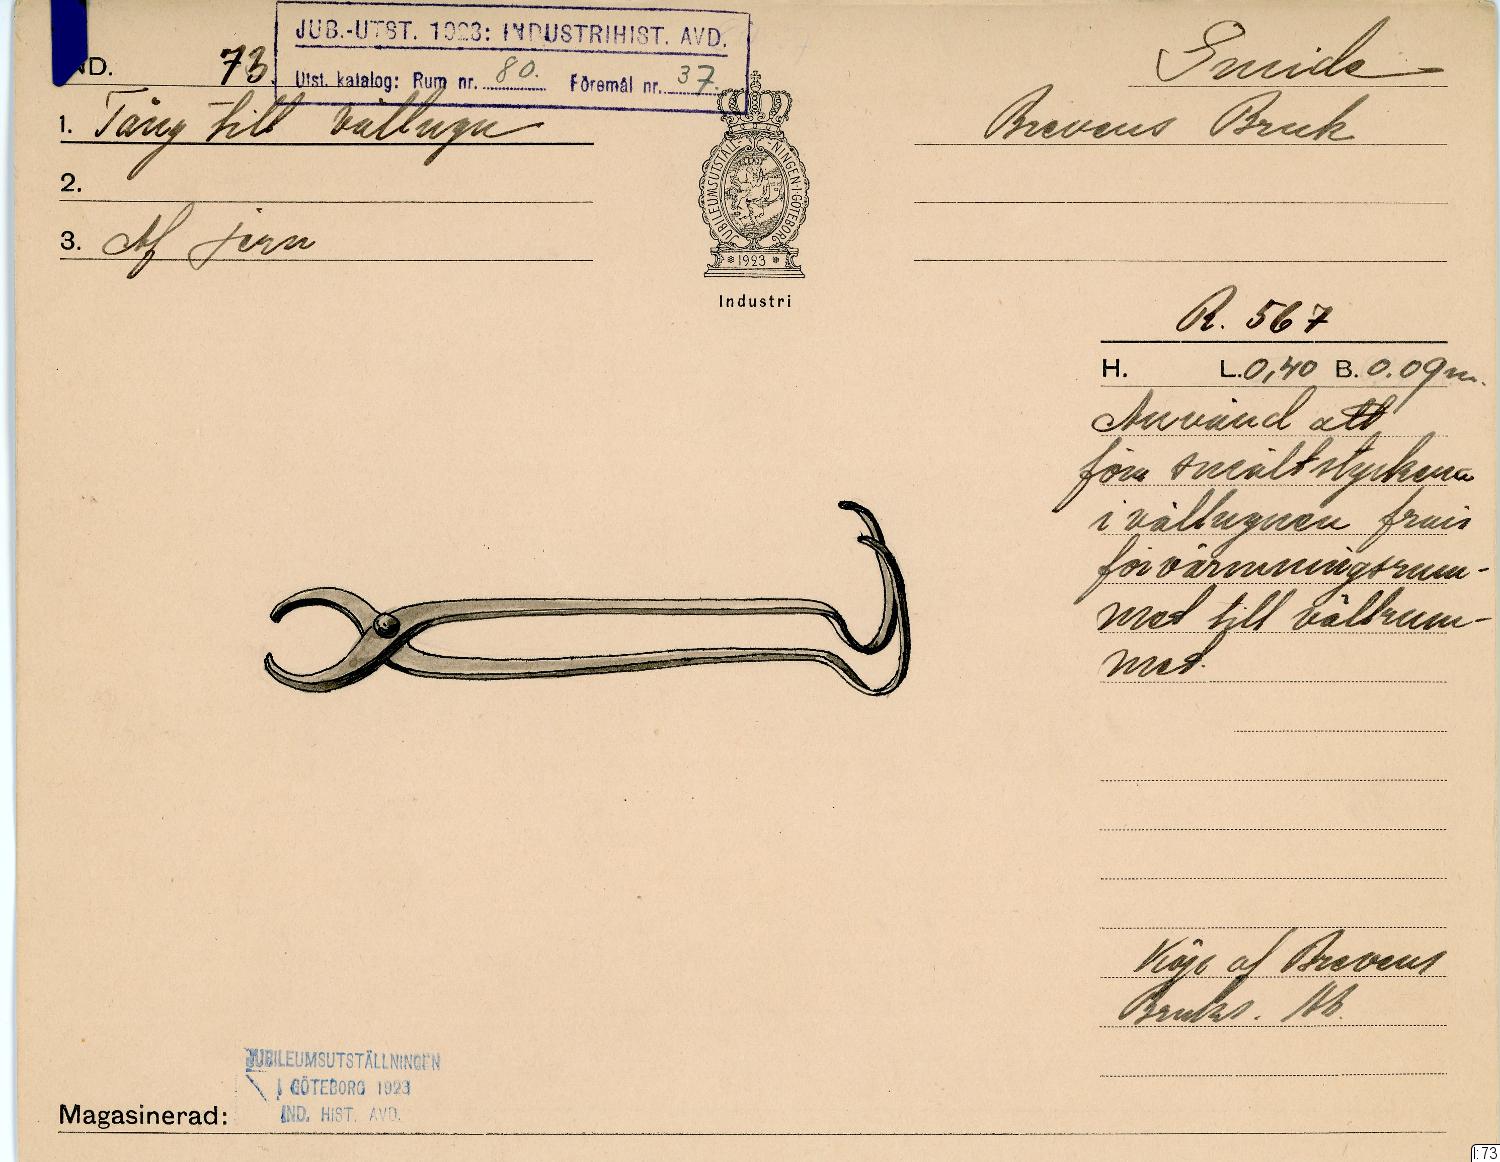 JUB.-UTST. 1923: INDUSTRIHIST. AVD.
Utst. katalog: Rum nr. 80. Föremål nr. 37.
IND. 73.
Smide
1. Tång till vällugn
Brevens Bruk
2.
3. Af jern
JUBILEUMSUTSTÄLLNINGEN I GÖTEBORG
* 1923 *
Industri
R. 567
H. L. 0,40 B. 0.09 m.
Använd att
föra smältstyckena
i vällugnen från
förvärmningsrum-
met till vällrum-
met.
af Brevens
Bruks. AB.
JUBILEUMSUTSTÄLLNINGEN
I GÖTEBORG 1923
IND. HIST. AVD.
Magasinerad:
I:73